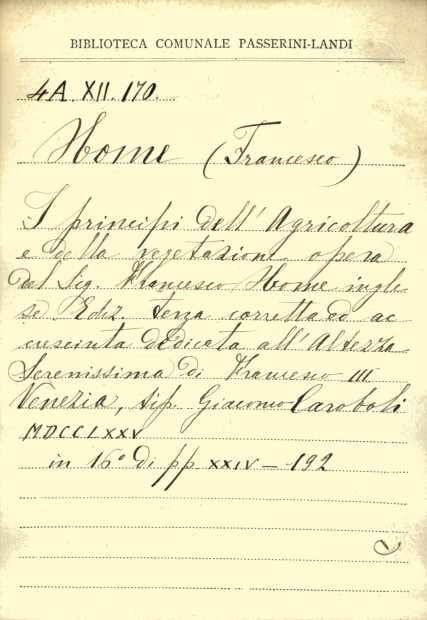 BIBLIOTECA COMUNALE PASSERINI-LANDI
4A. XII. 170.
Home (Francesco)
I principi dell' Agricoltura
e della vegetazione opera
del Sig. Francesco Home ingle
se Ediz. terza corretta ed ac
cresciuta dedicata all' Altezza
Serenissima di Francesco III
Venezia, tip. Giacomo Caroboli
MDCCLXXV
in 16° di pp. XXIV - 192